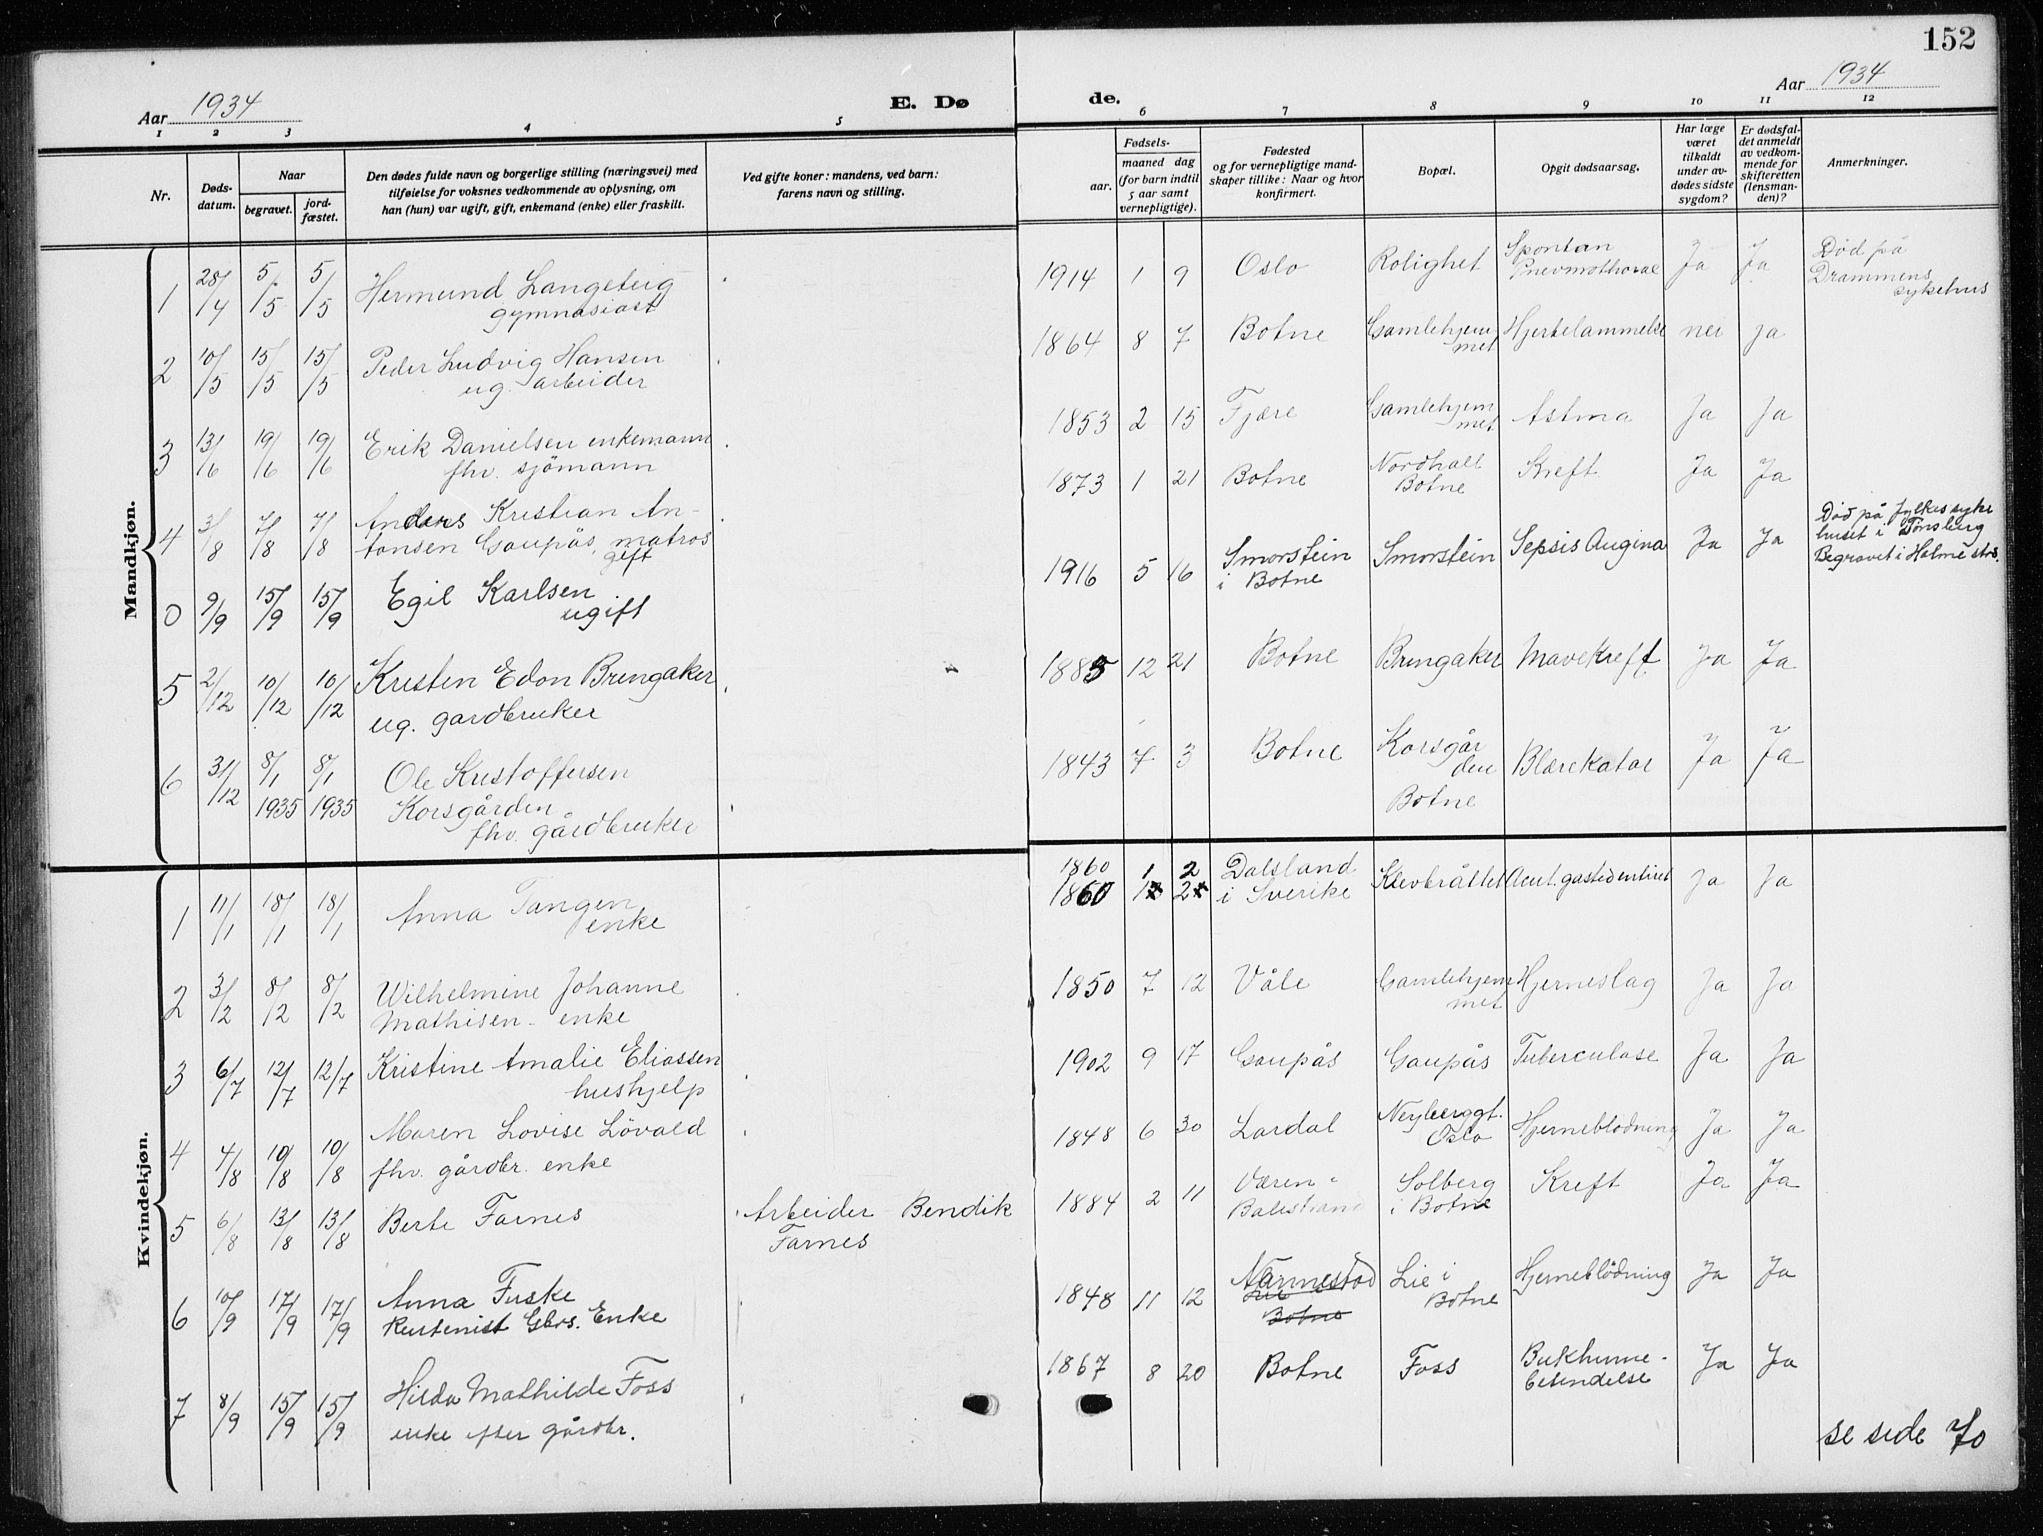 152
Aar 1934
E. Dø
de.
Aar 1934
1 2 3 4 5 6 7 8 9 10 11 12
Nr.
Døds-
datum.
Naar
begravet.
jord-
fæstet.
Den dødes fulde navn og borgerlige stilling (næringsvei) med
tilføielse for voksnes vedkommende av oplysning, om
han (hun) var ugift, gift, enkemand (enke) eller fraskilt.
Ved gifte koner: mandens, ved barn:
farens navn og stilling.
Fødsels-
aar.
maaned dag
(for barn indtil
5 aar samt
vernepligtige).
Fødested
og for vernepligtige mand-
skaper tillike: Naar og hvor
konfirmert.
Bopæl.
Opgit dødsaarsag.
Har læge
været
tilkaldt
under av-
dødes sidste
sygdom?
Er dødsfal-
det anmeldt
av vedkom-
mende for
skifteretten
(lensman-
den)?
Anmerkninger.
Mandkjøn.
1 28/4 5/5 5/5 Hermund Langeteig 1914 1 9 Oslo Rolighet Spontan Pnevmothorax Ja Ja Død på
gymnasiast Drammens
sykehus
2 10/5 15/5 15/5 Peder Ludvig Hansen 1864 8 7 Botne Gamlehjem Hjertelammelse nei ja
ug. arbeider met
3 13/6 19/6 19/6 Erik Danielsen enkemann 1853 2 15 Fjære Gamlehjem Astma Ja Ja
fhv. sjömann met
4 3/8 7/8 7/8 Anders Kristian An- 1873 1 21 Botne Nordhall Kreft Ja Ja
tonsen Gaupås, matros Botne
gift
0 9/9 15/9 15/9 Egil Karlsen 1916 5 16 Smorstein Smorstein Sepsis Angina Ja Ja Död på fylkessyke
ugift i Botne huset i Tönsberg
Begravet i Holmestr.
5 2/12 10/12 10/12 Kristen Edon Bringaker 1885 12 21 Botne Bringaker Mavekreft Ja Ja
ug. gardbruker
6 31/12 8/1 8/1 Ole Kristoffersen 1843 7 3 Botne Korsgår Blærekatar Ja Ja
1935 1935 Korsgården den
fhv. gårdbruker Botne
Kvindekjøn.
1 11/1 18/1 18/1 Anna Tangen 1860 1 2 Dalsland Klevbråttet Ja Ja
enke 1860 i Sverike
2 3/2 8/2 8/2 Wilhelmine Johanne 1850 7 12 Våle Gamlehjem Hjerneslag Ja Ja
Mathisen - enke met
3 6/7 12/7 12/7 Kristine Amalie Eliassen 1902 9 17 Gaupås Gaupås Tuberculose Ja Ja
hushjelp
4 4/8 10/8 10/8 Maren Lovise Lövald 1848 6 30 Lardal Neuberggt. Hjerneblödning Ja Ja
fhv. gårdbr. enke Oslo
5 6/8 13/8 13/8 Berte Farnes Arbeider Bendik 1884 2 11 Solberg Kreft Ja Ja
Farnes Balestrand i Botne
6 10/9 17/9 17/9 Anna Fuske 1848 11 12 Narmestad Lie i Hjerneblödning Ja Ja
Gbrs. Enke Lie Botne
Botne
7 8/9 15/9 15/9 Hilda Mathilde Foss 1867 8 20 Botne Foss Bukhinne- Ja Ja
enke efter gårdbr. betendelse
se side 70